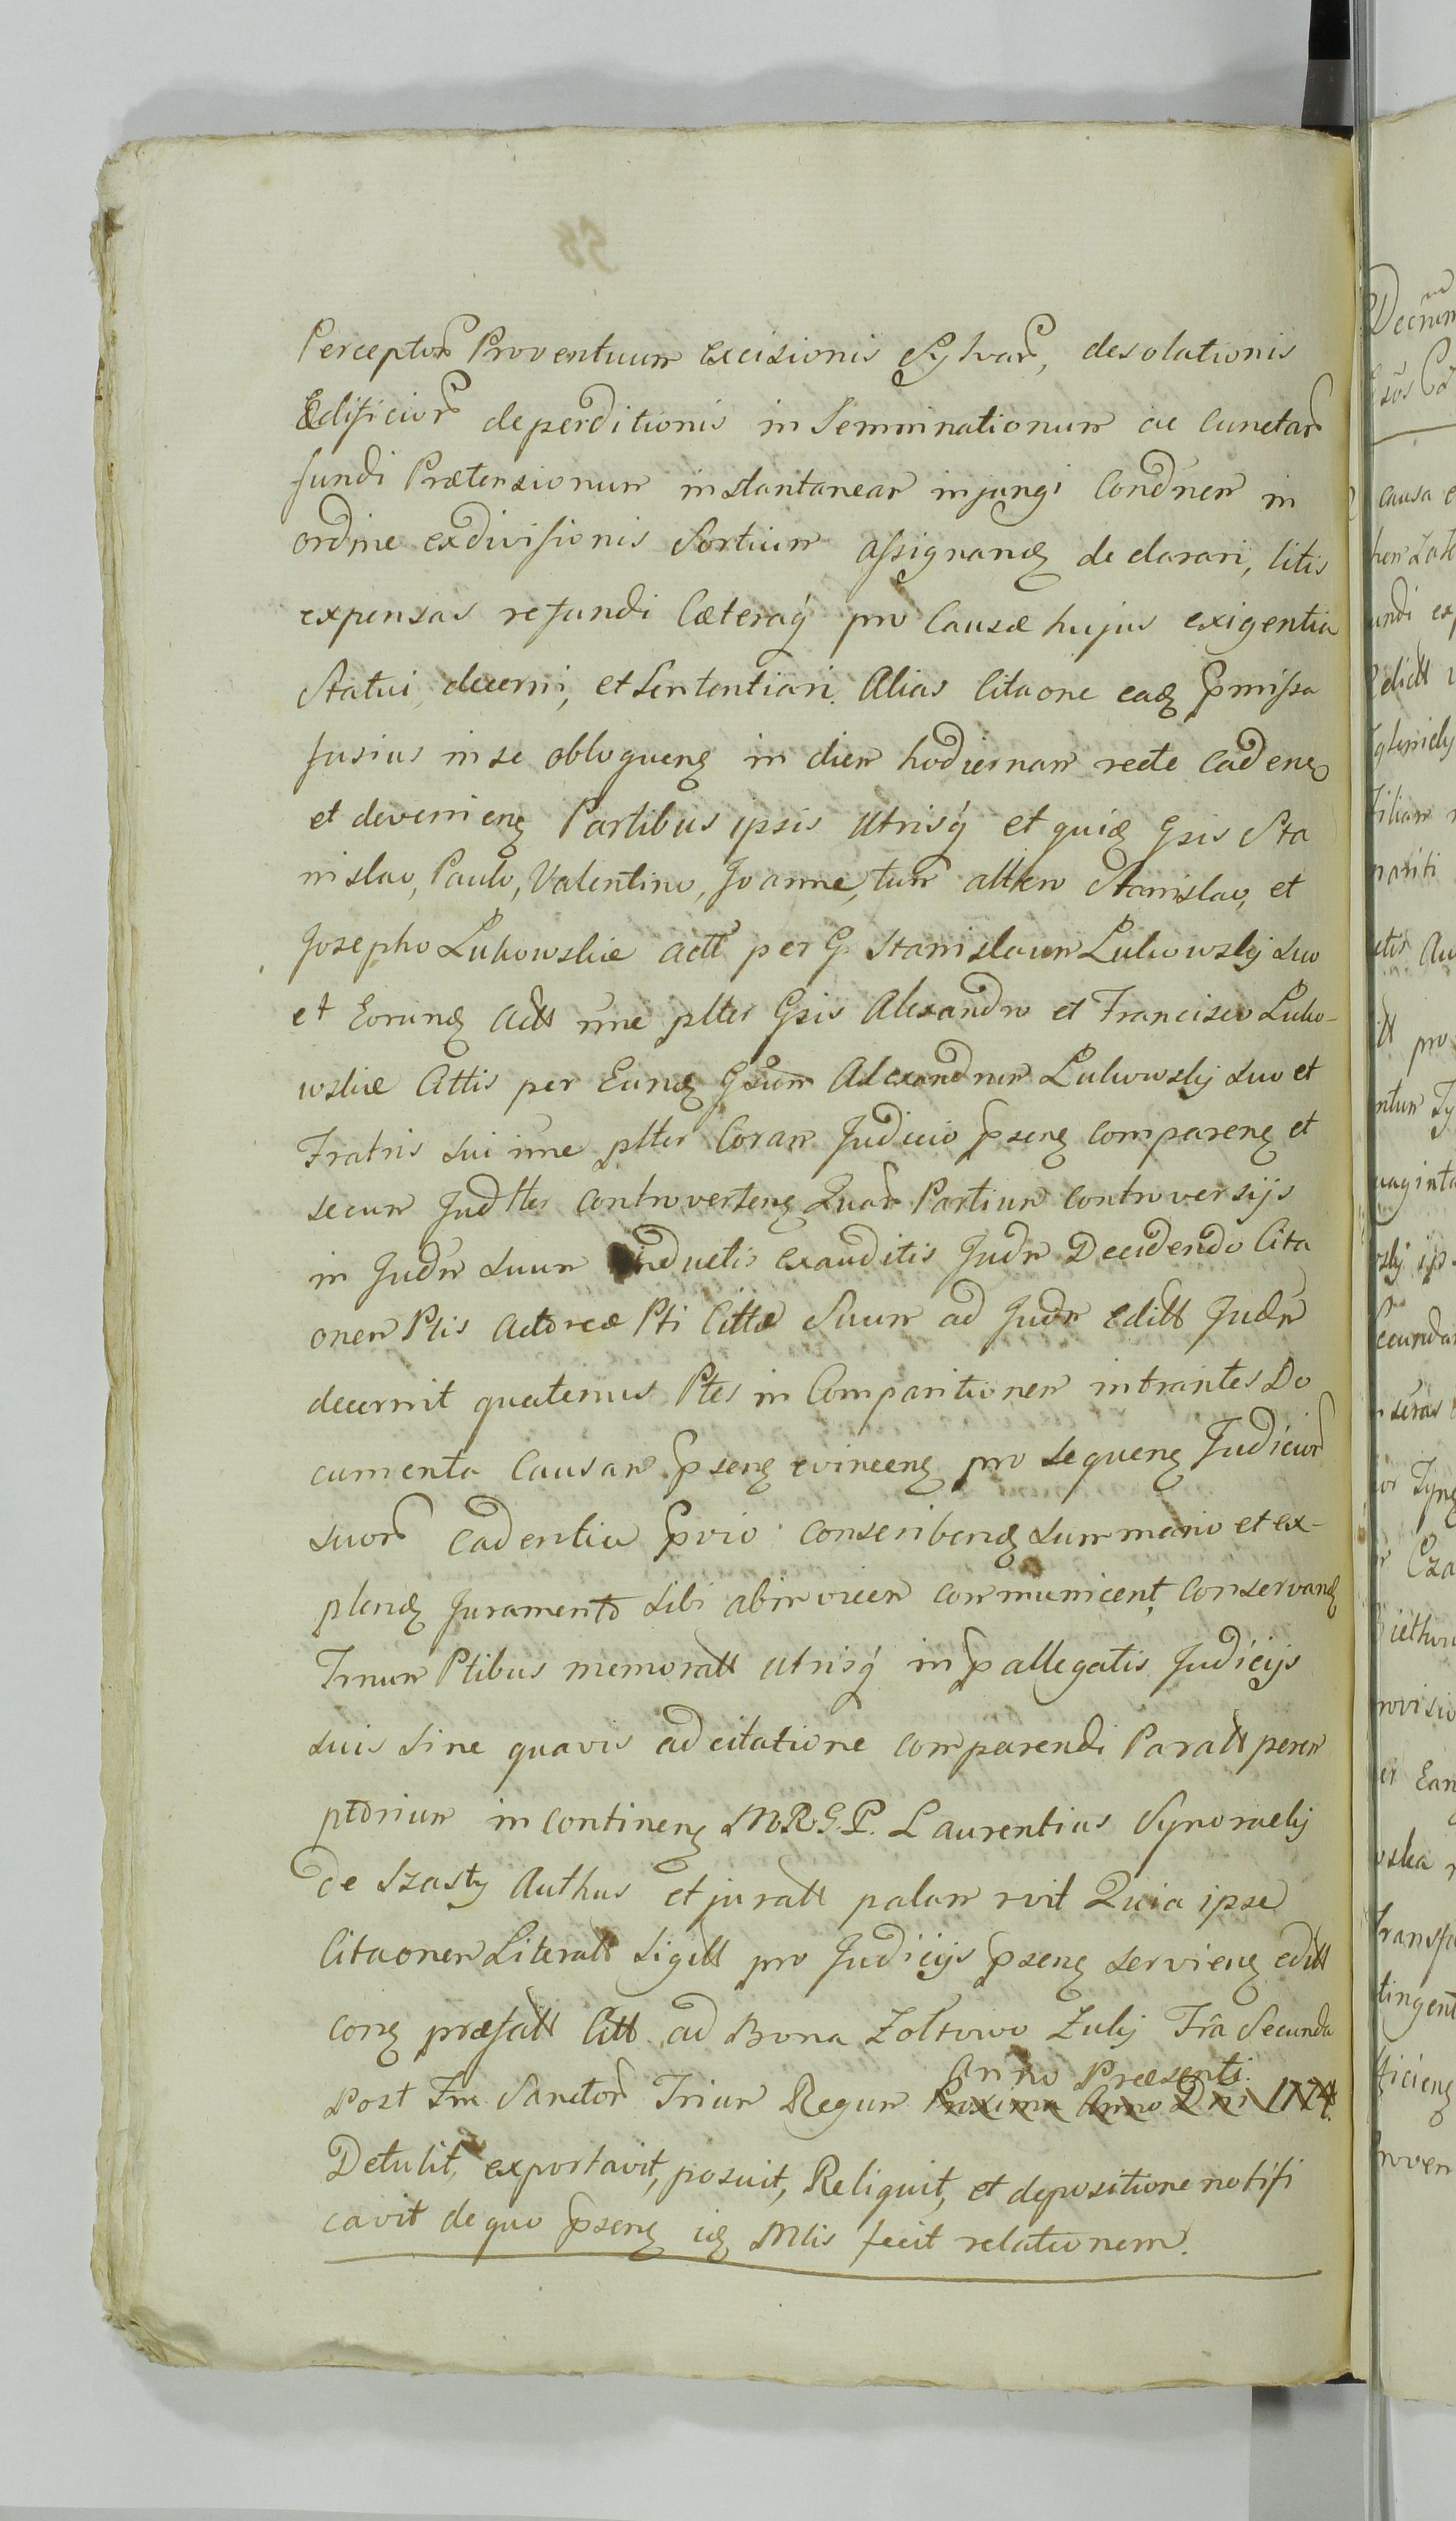 Perceptor Proventuum excisionis Sylvar, desolationis
Ædificior deperditionis inseminationum ac cunctar
fundi Prætensionum instantanear injungi Condnem in
ordine exdivisionis Sortium assignandę declarari, litis
expensas refundi Cæteraq́ pro Causæ hujus exigentia
Statui, decerni, et Sententiari. Alias Citaone eadę pmissa
fusius in se obloquenę in diem hodiernam recte cadenę
et devenienę Partibus ipsis Utrisq́ et quidę Gsis Sta
nislao, Paulo, Valentino, Joanne, tum altero Stanislao, et
Josepho Lukowskie actt per G. Stanislaum Lukowsky suo
et Eorundę actt nne plter Gsis Alexandro et Francisco Luko-
wskie Cittis per Eundę Gsum Alexandrum Lukowsky suo et
Fratris sui nne plter Coram Judicio psenę comparenę et
secum Judtter controvertenę Quar Partium controversijs
in Judm suum inductis exauditis Judm Decidendo Cita
onem Ptis actoreæ Pti Cittæ Suum ad Judm editt Judm
decernit quatenus Ptes in Comparitionem intrantes Do
cumenta Causam psenę evincenę pro sequenę Judicior
suor cadentia pvio conscribendę summario et ex-
plendę Juramento sibi abinvicem communicent, conservandę
Tmum Ptibus memoratt utrisq́ in pallegatis Judicijs
suis sine quavis adcitatione comparendi Paratt perem
ptorium in continenę M.R.G.P. Laurentius Synoracky
de Szasty Authus et juratt palam rvit Quia ipse
Citaonem Literatt Sigitt pro Judicijs psenę servienę editt
conę præfatt Citt ad Bona Zoltowo Zuly Fra Secunda
Anno Præsenti.
post Fm Sanctor Trium Regum Proxima Anno Dni 1774.
Detulit, exportavit, posuit, Reliquit, et depositione notifi
cavit de quo psenę idę Mlis fecit relationem.